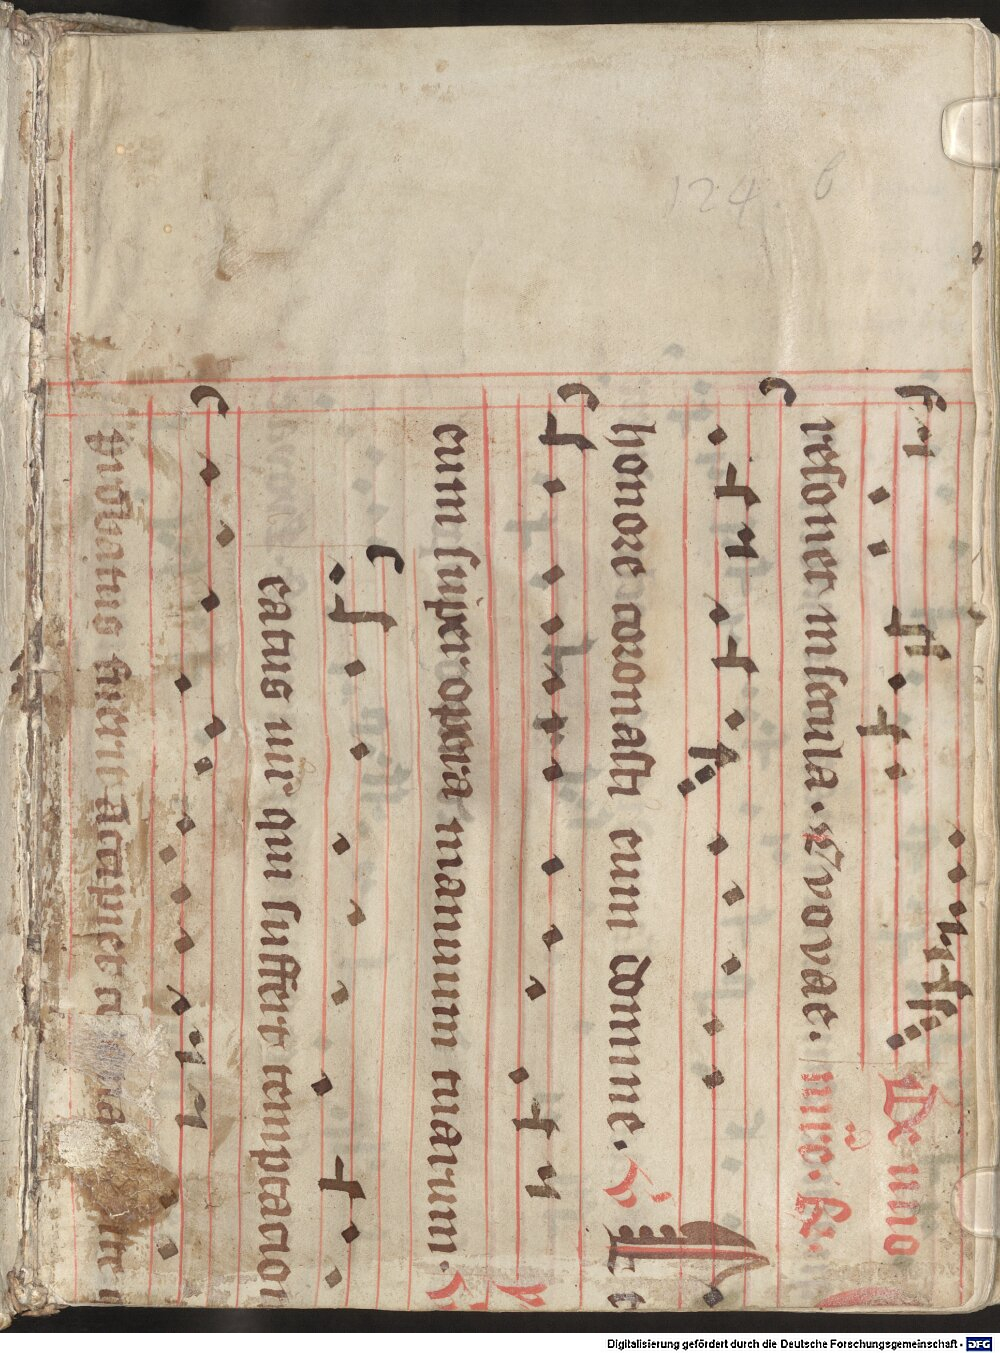 124. b
resonet in secula. Evovae. De uno
mr̃e. R.
honore coronasti eum domine. V Et
eum super opera manuum tuarum. V
eatus uir qui suffert temptacion
probatus fuerit accipiet
Digitalisierung gefördert durch die Deutsche Forschungsgemeinschaft - DFG